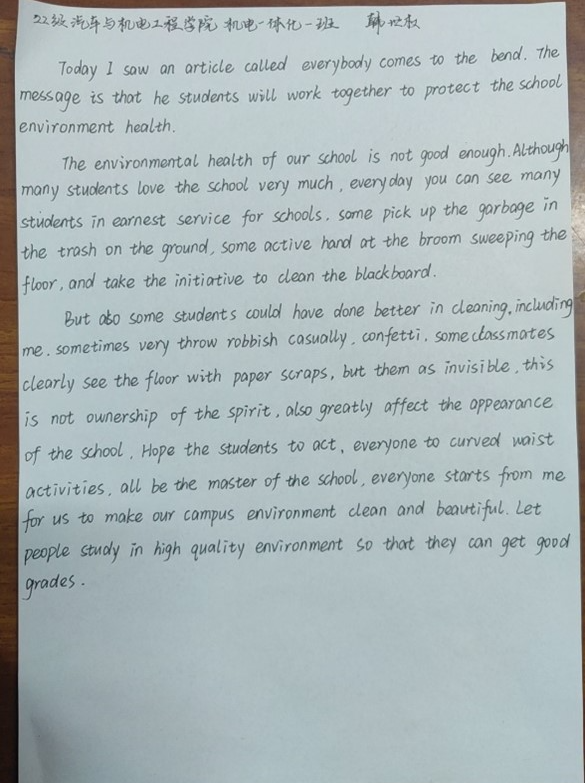 22级汽车与机电工程学院 机电一体化一班 韩世权
Today I saw an article called everybody comes to the bend. The
message is that he students will work together to protect the school
environment health.
The environmental health of our school is not good enough. Although
many students love the school very much, everyday you can see many
students in earnest service for schools. some pick up the garbage in
the trash on the ground, some active hand at the broom sweeping the
floor, and take the initiative to clean the blackboard.
But also some students could have done better in cleaning, including
me. sometimes very throw robbish casually, confetti, some classmates
clearly see the floor with paper scraps, but them as invisible, this
is not ownership of the spirit, also greatly affect the appearance
of the school. Hope the students to act, everyone to curved waist
activities, all be the master of the school, everyone starts from me
for us to make our campus environment clean and beautiful. Let
people study in high quality environment so that they can get good
grades.